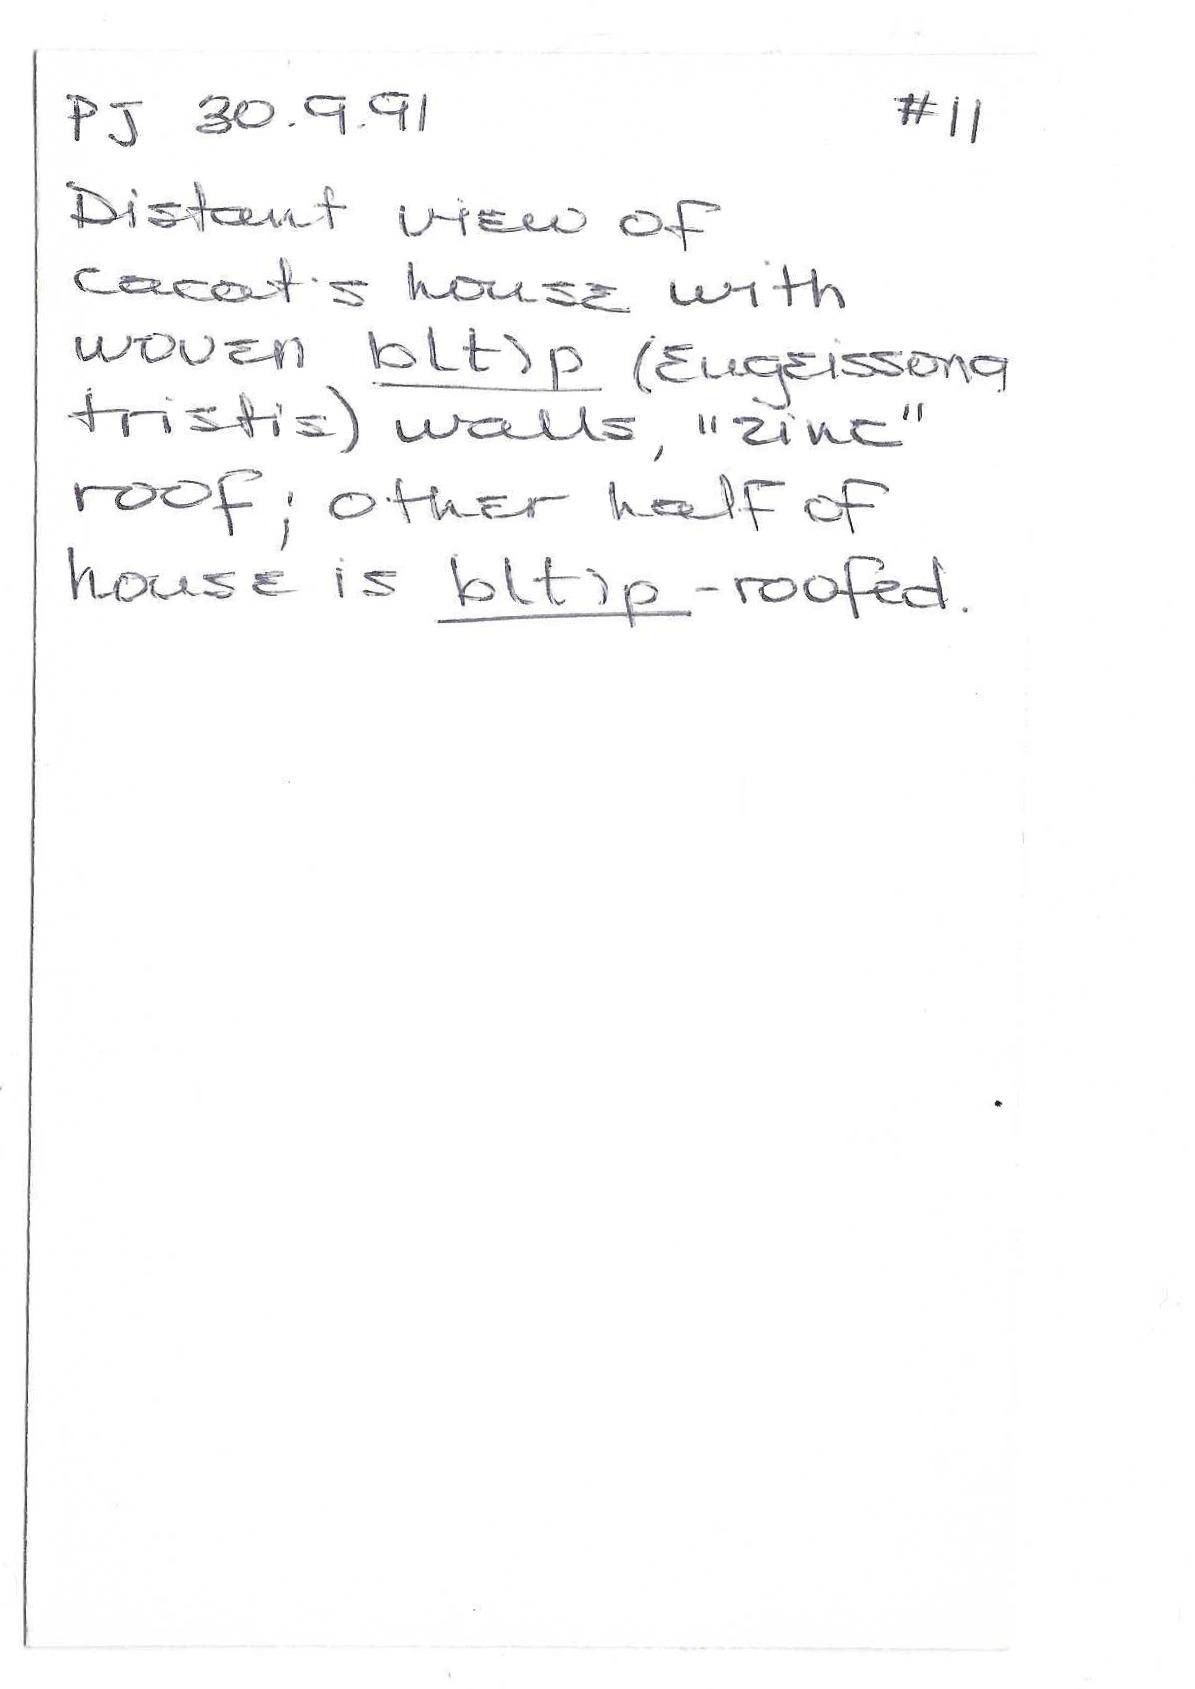 PJ 30.9.91 #11
Distant view of
cacat's house with
woven bltɔp (Eugeissona
tristis) walls, "zinc"
roof; other half of
house is bltɔp-roofed.